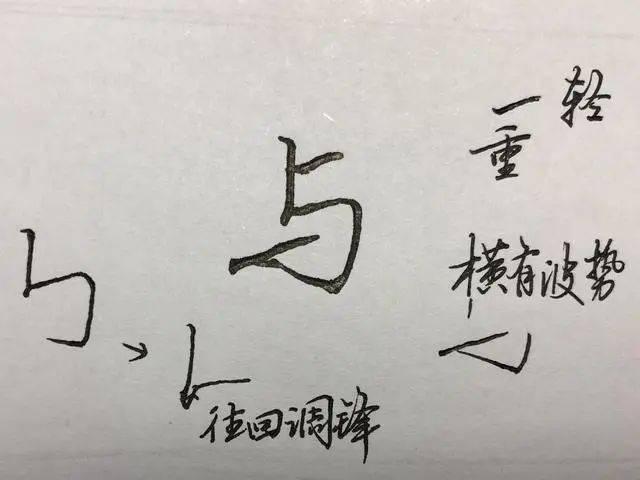 与
一轻
重
横有波势
往回调锋